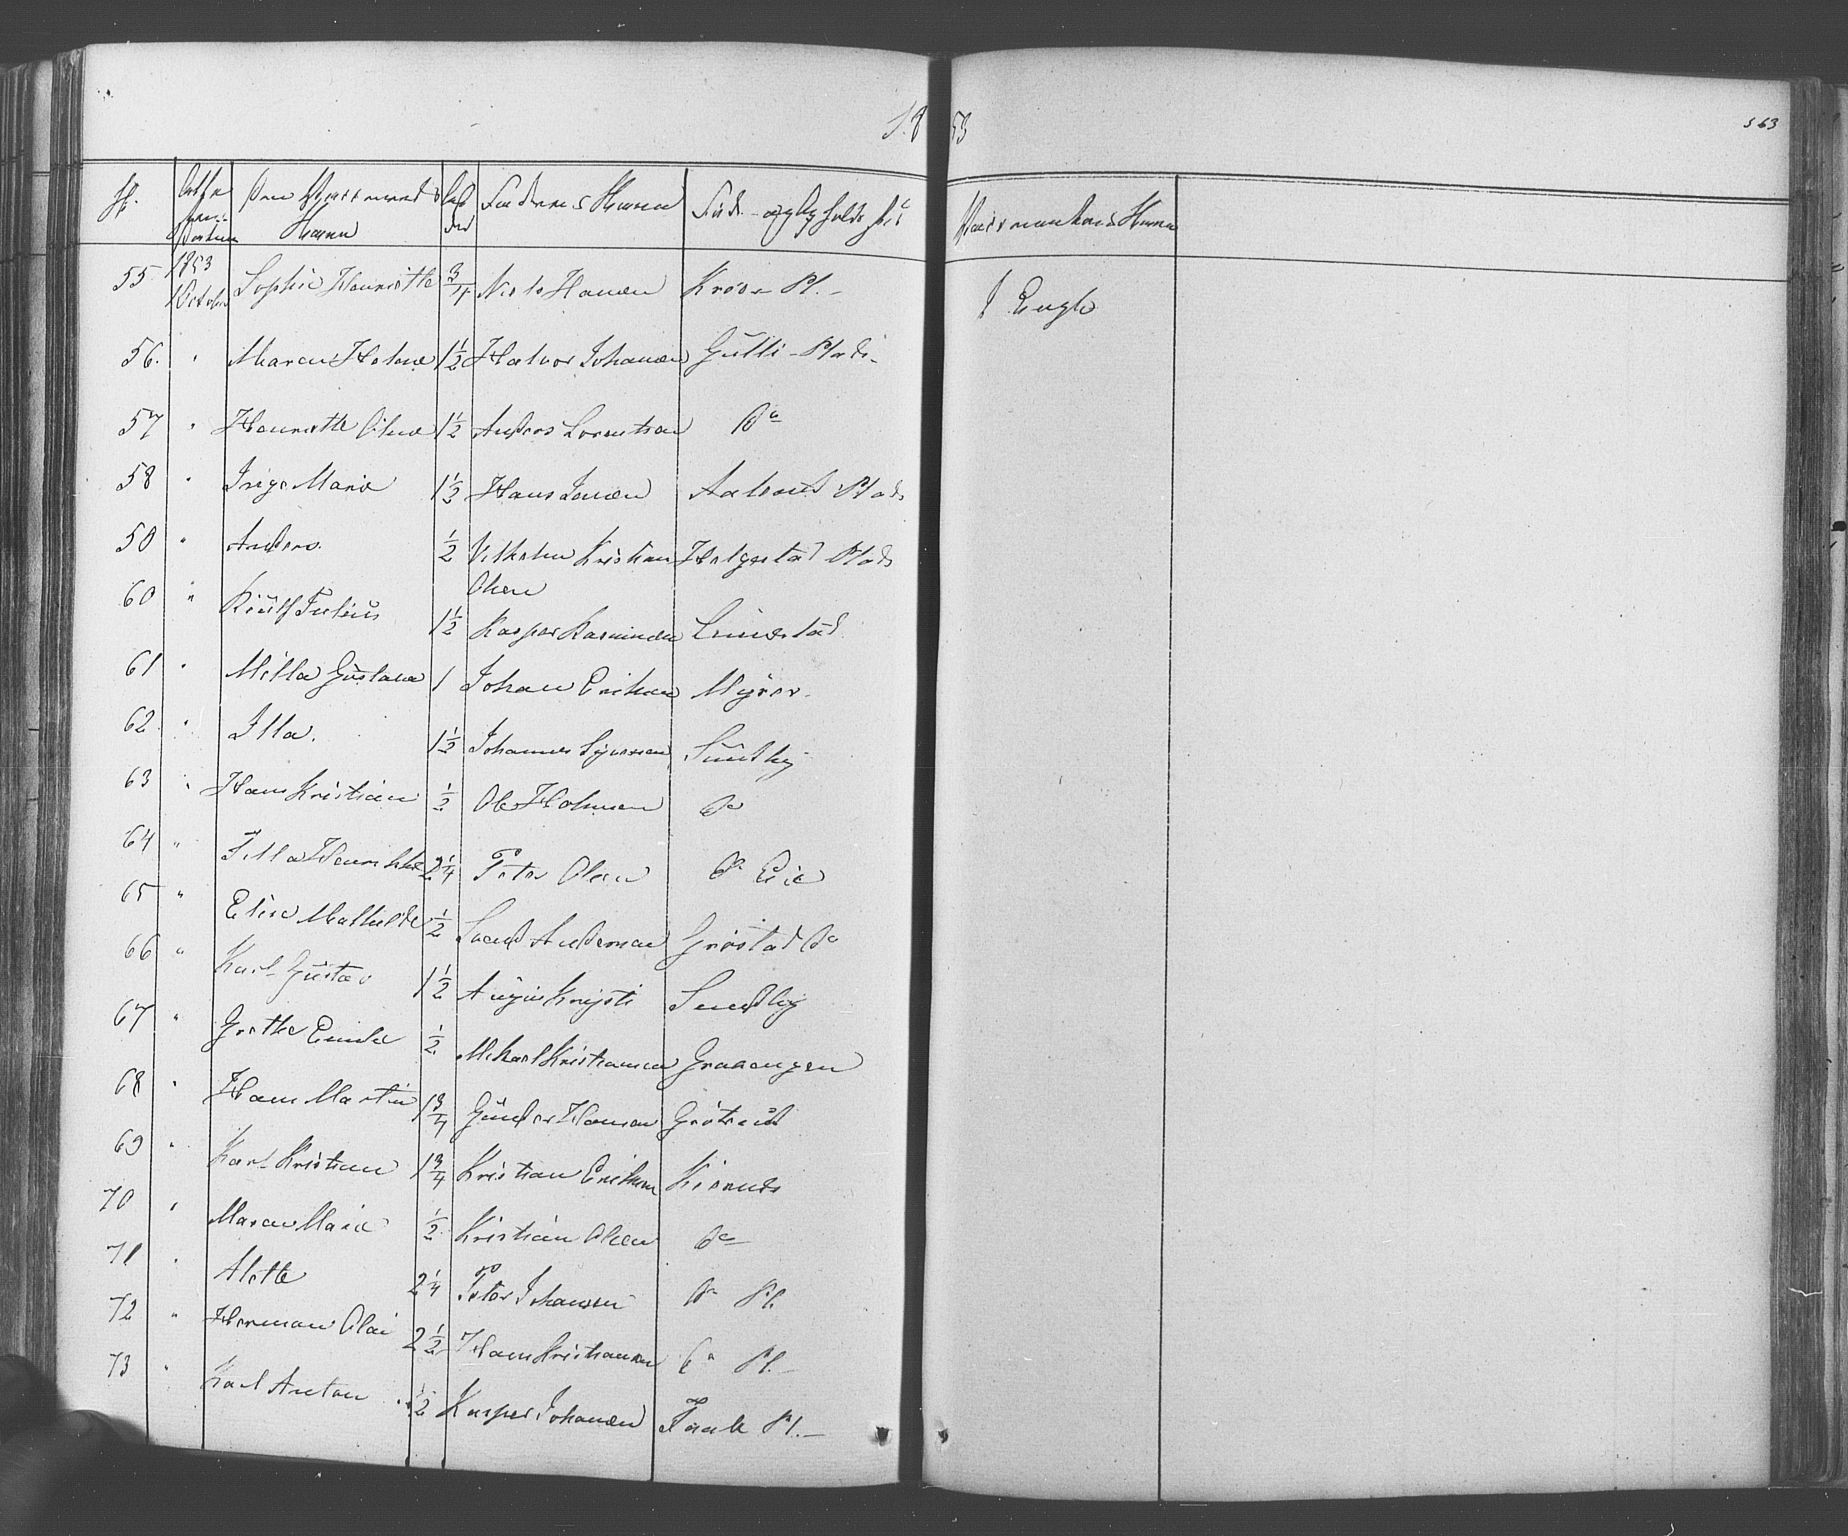 1853
563
No. Den Vaccineredes Navn Faderens Navn Føde- og Opholdsst. Vaccinateurens Navn
55 1853 October Sophie Henriette 3/4 Niels Hansen Pl. J Engh
56. " Maren Helene 1 1/2 Halvor Johansen Gulli Plads
57 " Henriette Oline 1 1/2 Anders Lorentsen Do
58 " Inge Marie 1 1/2 Hans Jensen Plads
59 " Anders 1/2 Vilhelm Kristian Olsen Helgestad Plads
60 " Julius 1 1/2 Kasper Linnestad
61 " Milla Gustava 1 Johan Eriksen Myrer
62 " Illa. 1 1/2 Johannes Syversen Sundby
63 " Hans Kristian 1/2 Ole Do
64 " Henrikke 2 1/4 Peter Olsen Do Eie
65 " Elise Mathilde 1/2 Svend Andersen Grøstad Do
66 " Karl Gustav 1 1/2 Sundby
67 " Grethe Emilie 1/2 Mikael Kristiansen Graaengen
68 " Hans Martin 1 3/4 Gunder Hansen
69 " Karl Kristian 1 3/4 Kristian Eriksen
70 " Maren Marie 1/2 Kristian Olsen Do
71 " Alette 2 1/4 Peter Johansen Do Pl.
72 " Herman Olai 2 1/2 Hans Kristiansen Do Pl.
73 " Karl Anton 1/2 Kasper Johansen Pl.